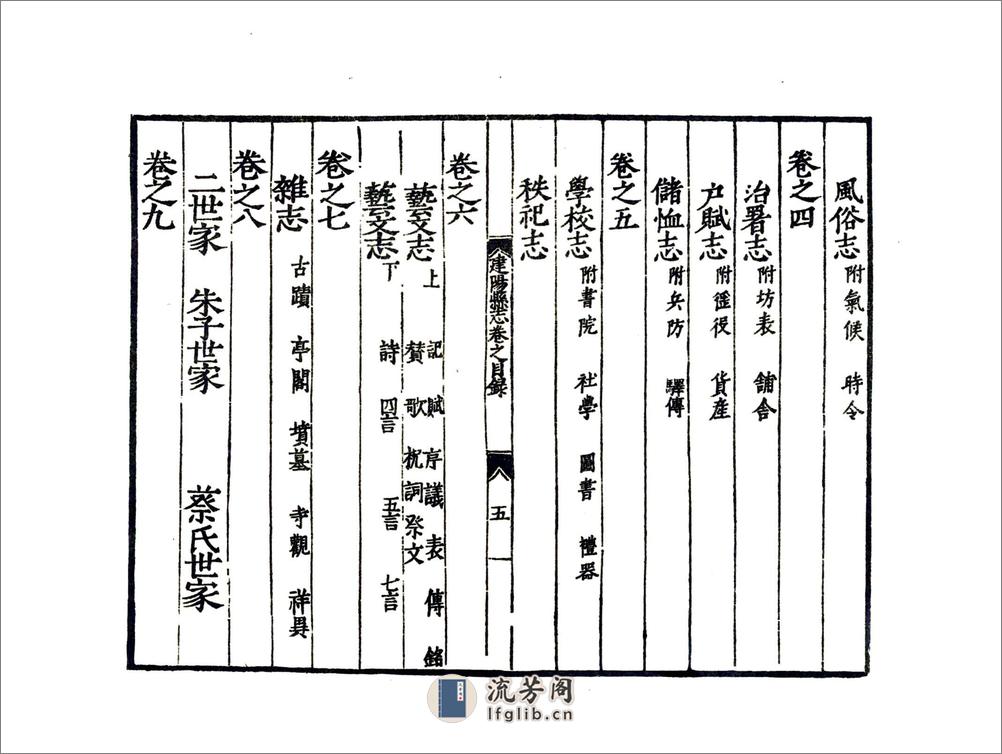 風俗志 附氣候 時令
卷之四
治署志 附坊表 舖舍
户賦志 附徭役 貨産
儲恤志 附兵防 驛傳
卷之五
學校志 附書院 社學 圖書 禮器
秩祀志
建陽縣志卷之目錄 五
卷之六
藝文志上 記 賦 序 議 表 傳 銘
贊 歌 祝詞 祭文
藝文志下 詩 四言 五言 七言
卷之七
雜志 古蹟 亭閣 墳墓 寺觀 祥異
卷之八
二世家 朱子世家 蔡氏世家
卷之九
流芳阁
lfglib.cn